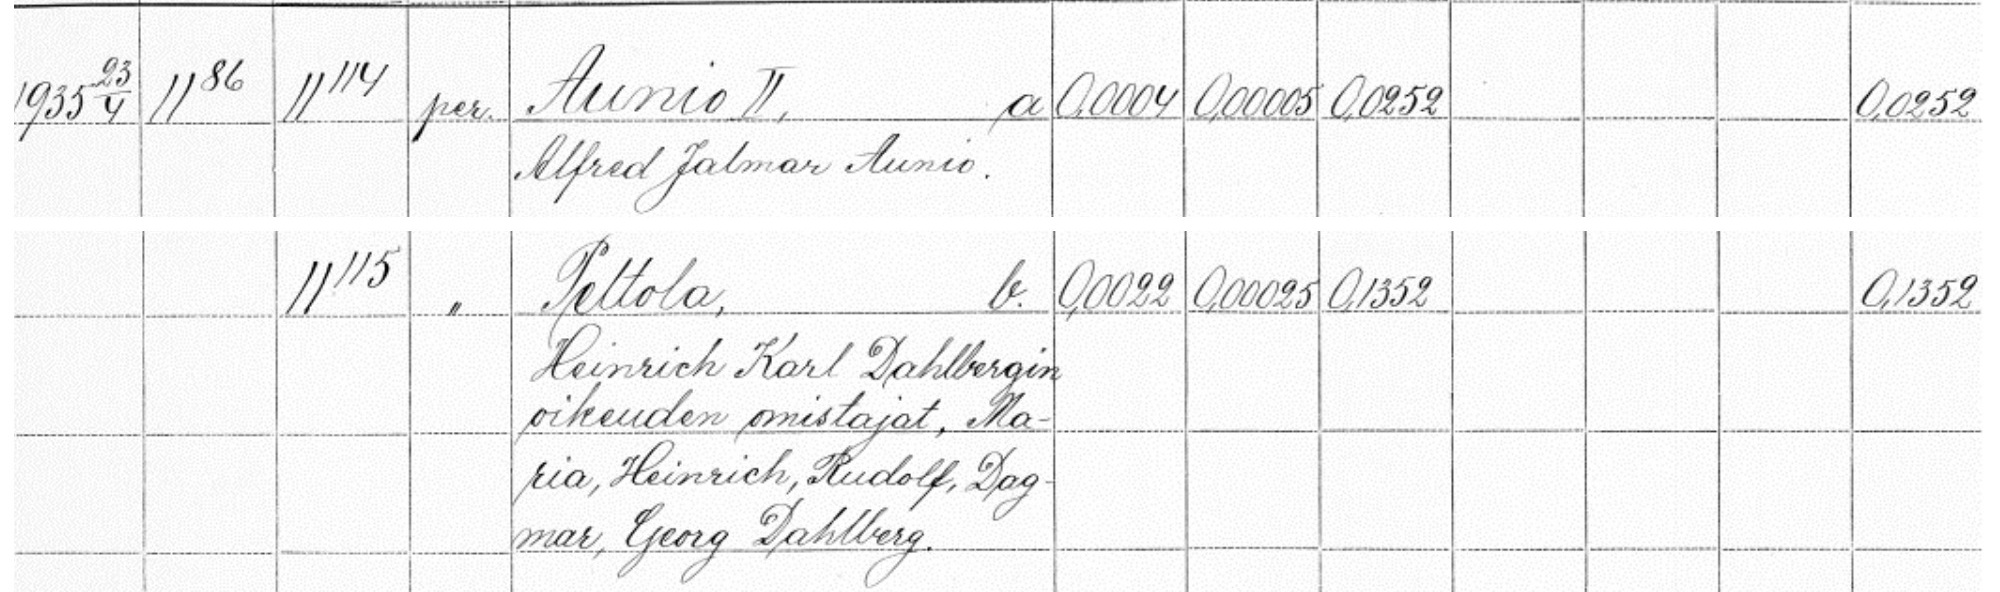 1935 23/4 11⁸⁶ 11¹¹⁴ per. Aunio II, a 0,0004 0,00005 0,0252 0,0252
Alfred Jalmar Aunio.
11¹¹⁵ " Peltola, b. 0,0022 0,00025 0,1352 0,1352
Heinrich Karl Dahlbergin
oikeuden omistajat, Ma-
ria, Heinrich, Rudolf, Dag-
mar, Georg Dahlberg.